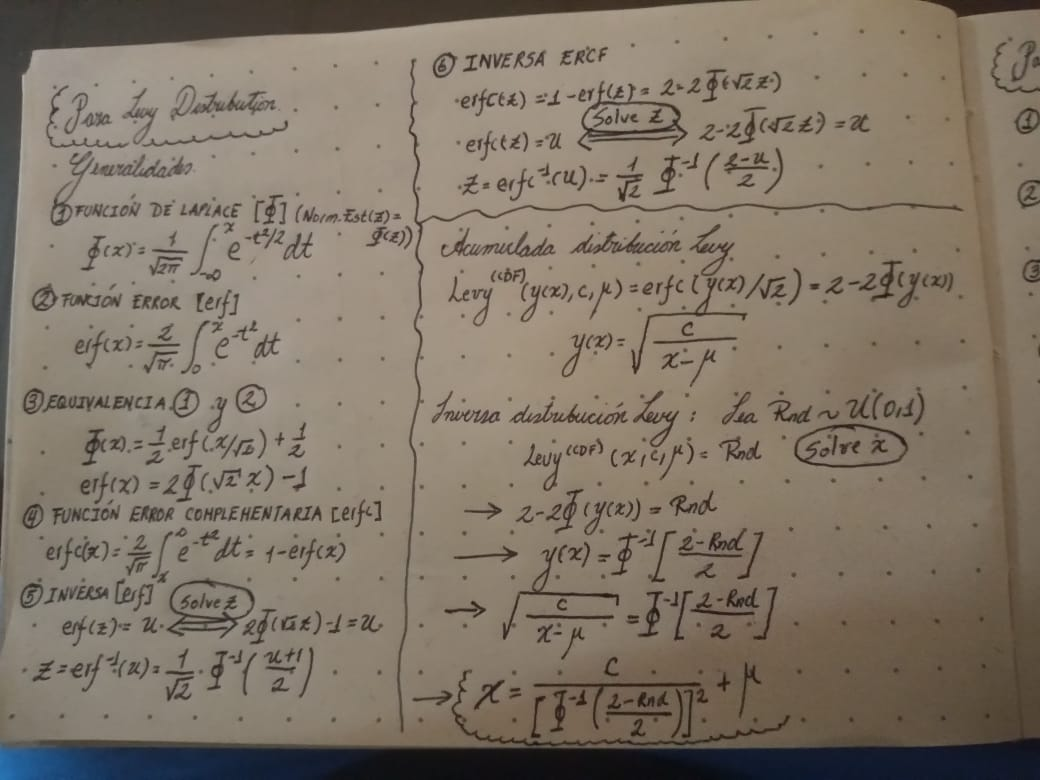 Para Levy Distribution.
Generalidades.
① FUNCIÓN DE LAPLACE [Φ] (Norm.Est(z)=
Φ(z))
Φ(x)=1/√2π ∫_{-∞}^{x} e^{-t²/2} dt
② FUNCIÓN ERROR [erf]
erf(x)=2/√π ∫_{0}^{x} e^{-t²} dt
③ EQUIVALENCIA ① y ②
Φ(x)=1/2 erf(x/√2)+1/2
erf(x)=2Φ(√2 x)-1
④ FUNCIÓN ERROR COMPLEMENTARIA [erfc]
erfc(x)=2/√π ∫_{x}^{∞} e^{-t²} dt = 1-erf(x)
⑤ INVERSA [erf]
Solve z
erf(z)=u ⟺ 2Φ(√2 z)-1=u
z=erf^{-1}(u)=1/√2 · Φ^{-1}((u+1)/2)
⑥ INVERSA ERCF
erfc(z)=1-erf(z)=2-2Φ(√2 z)
Solve z
erfc(z)=u ⟺ 2-2Φ(√2 z)=u
z=erfc^{-1}(u)=1/√2 Φ^{-1}((2-u)/2)
Acumulada distribución Levy
Levy^{(CDF)}(y(x),c,μ)=erfc(y(x)/√2)=2-2Φ(y(x))
y(x)=√(c/(x-μ))
Inversa distribución Levy: Sea Rnd ~ U(0,1)
Levy^{(CDF)}(x,c,μ)=Rnd Solve x
→ 2-2Φ(y(x))=Rnd
→ y(x)=Φ^{-1}[(2-Rnd)/2]
→ √(c/(x-μ))=Φ^{-1}[(2-Rnd)/2]
→ x=c/[Φ^{-1}((2-Rnd)/2)]²+μ
Pa
①
②
③